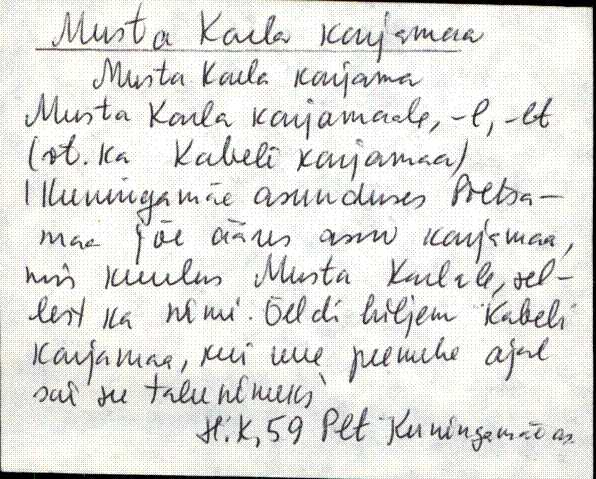 Musta Kaela karjamaa
Musta Kaela karjama
Musta Kaela karjamaale, -l, -lt
(vt. ka Kabeli karjamaa)
Kuningamäe asunduses Põltsa-
maa jõe ääres asuv karjamaa,
mis kuulus Musta Kaelale, sel-
lest ka nimi. Öeldi hiljem Kabeli
karjamaa, kui uue peremehe ajal
sai see talu nimeks
H.K, 59 Plt Kuningamäe as.